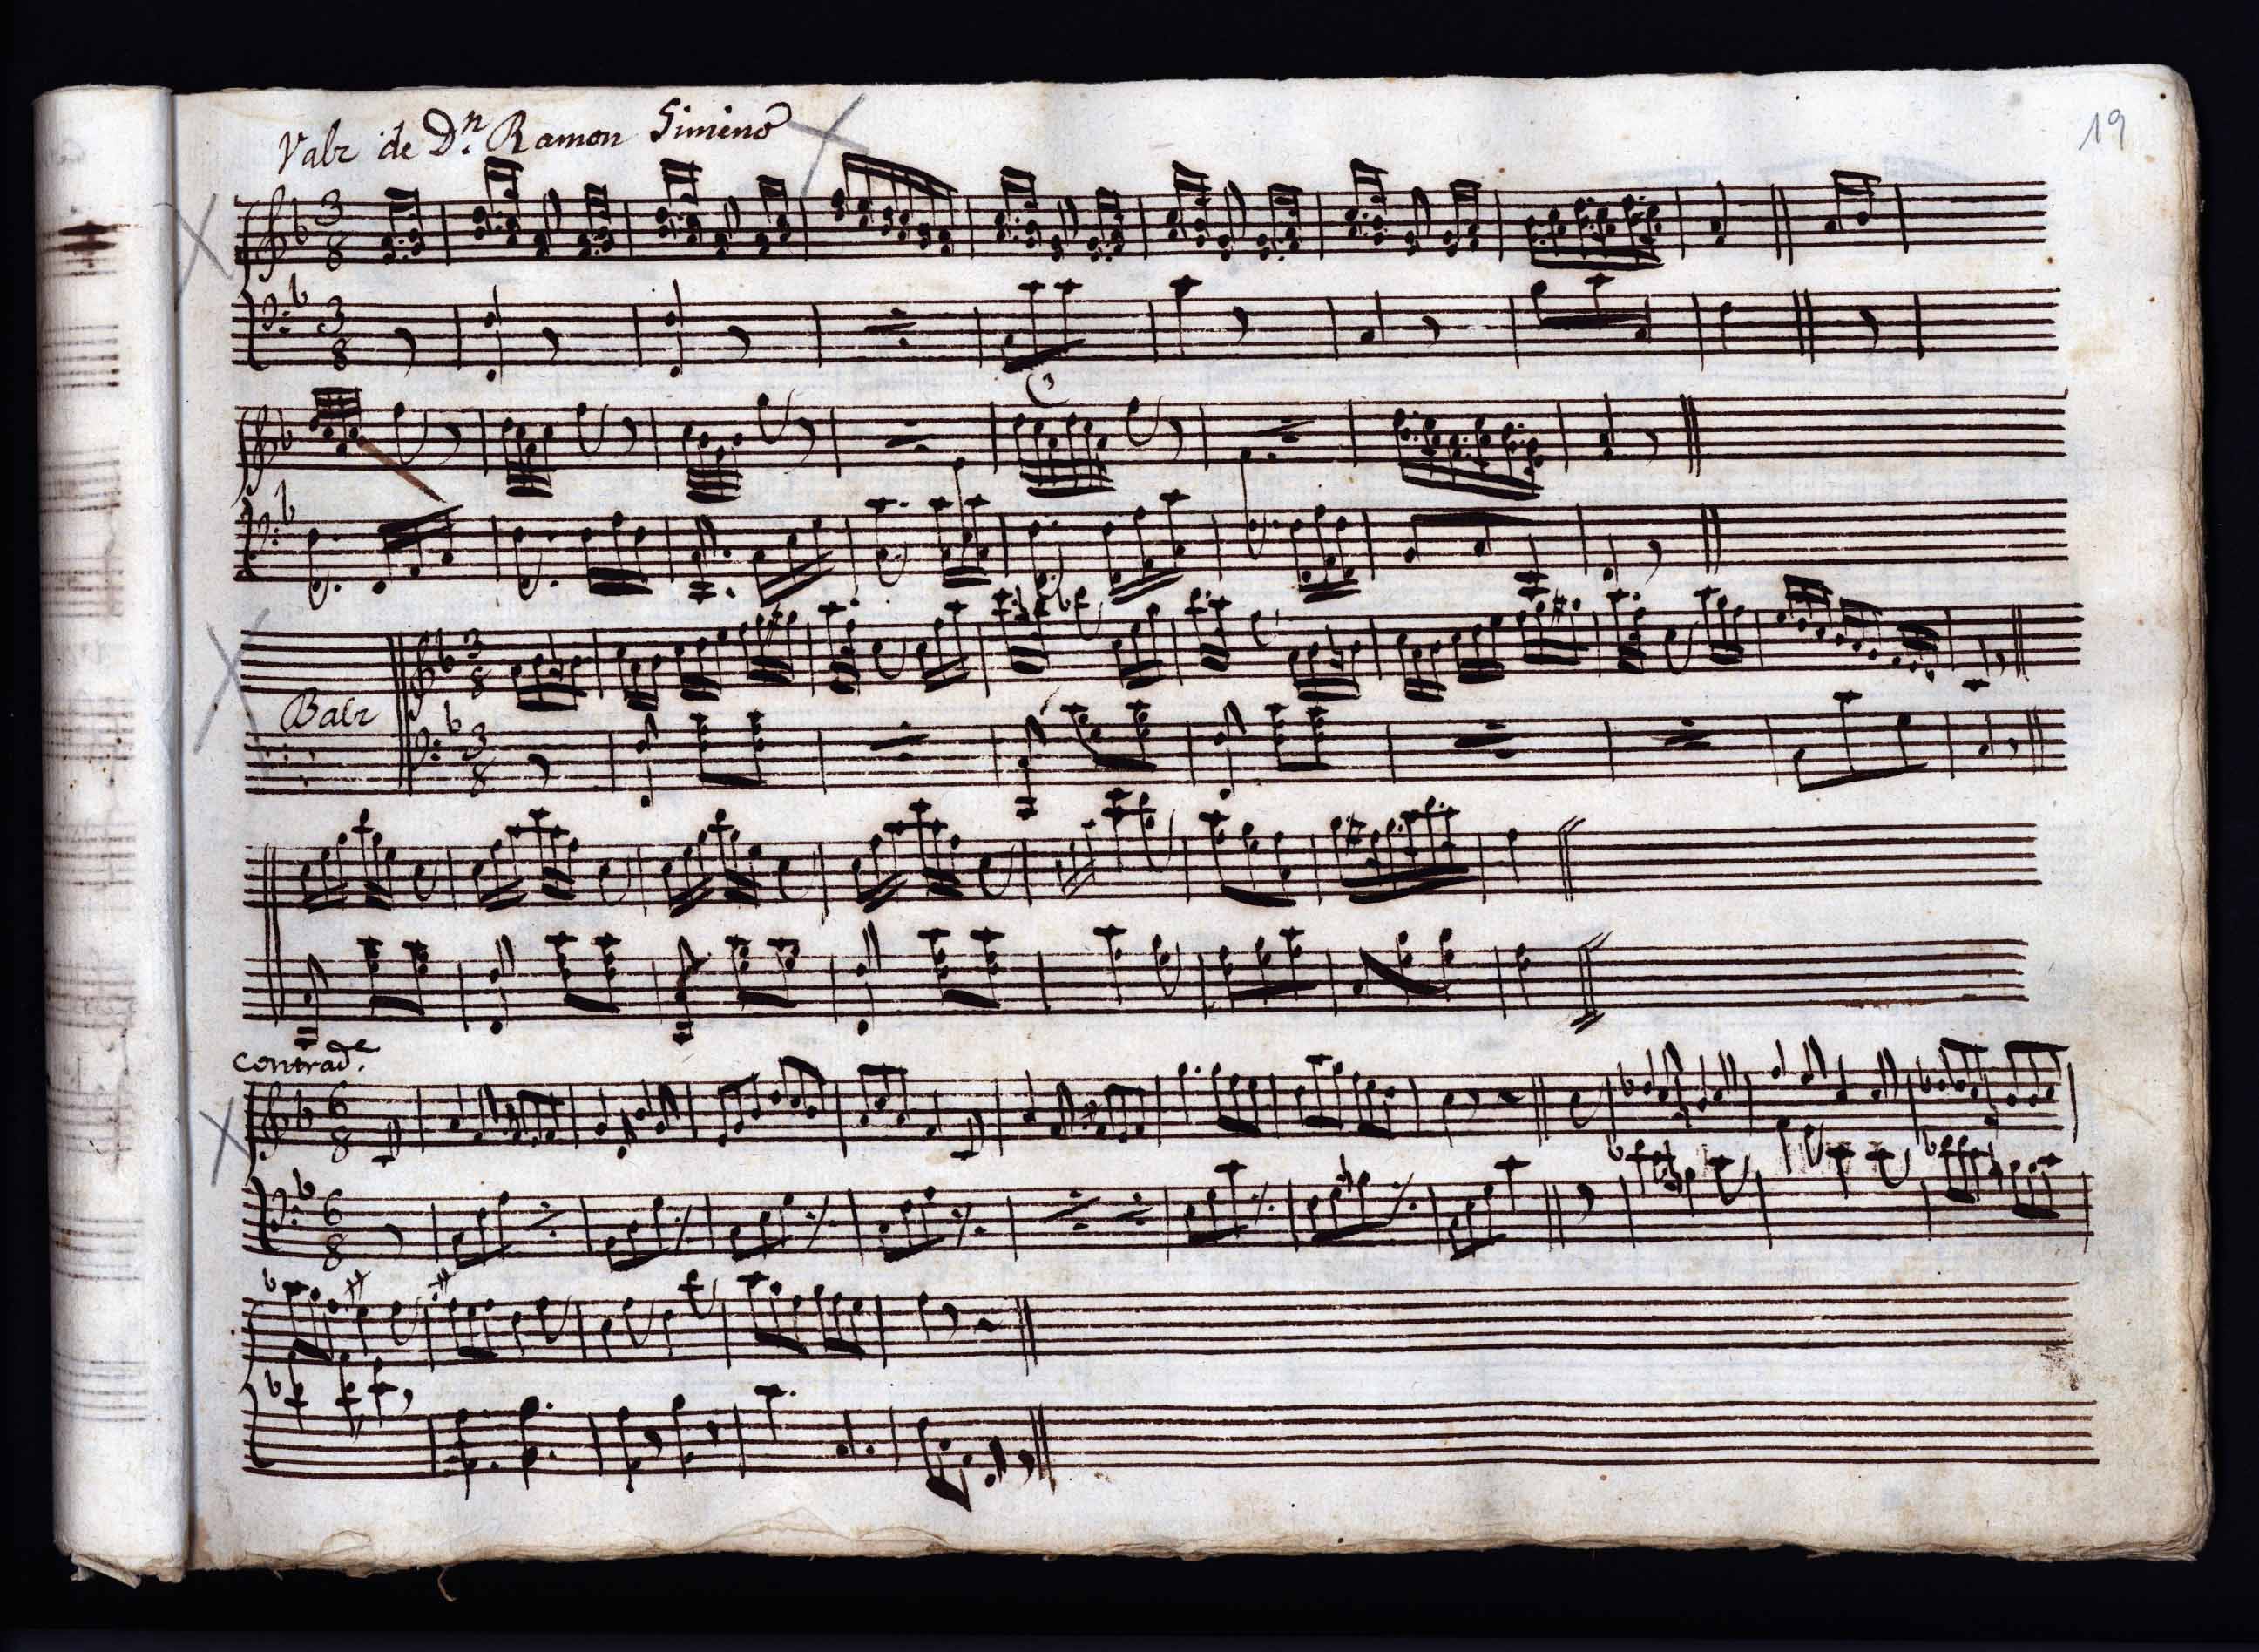 Valz de D.n Ramon Simeno
19
3
8
3
8
3
Balz
3
8
3
8
Contrad.e
6
8
6
8